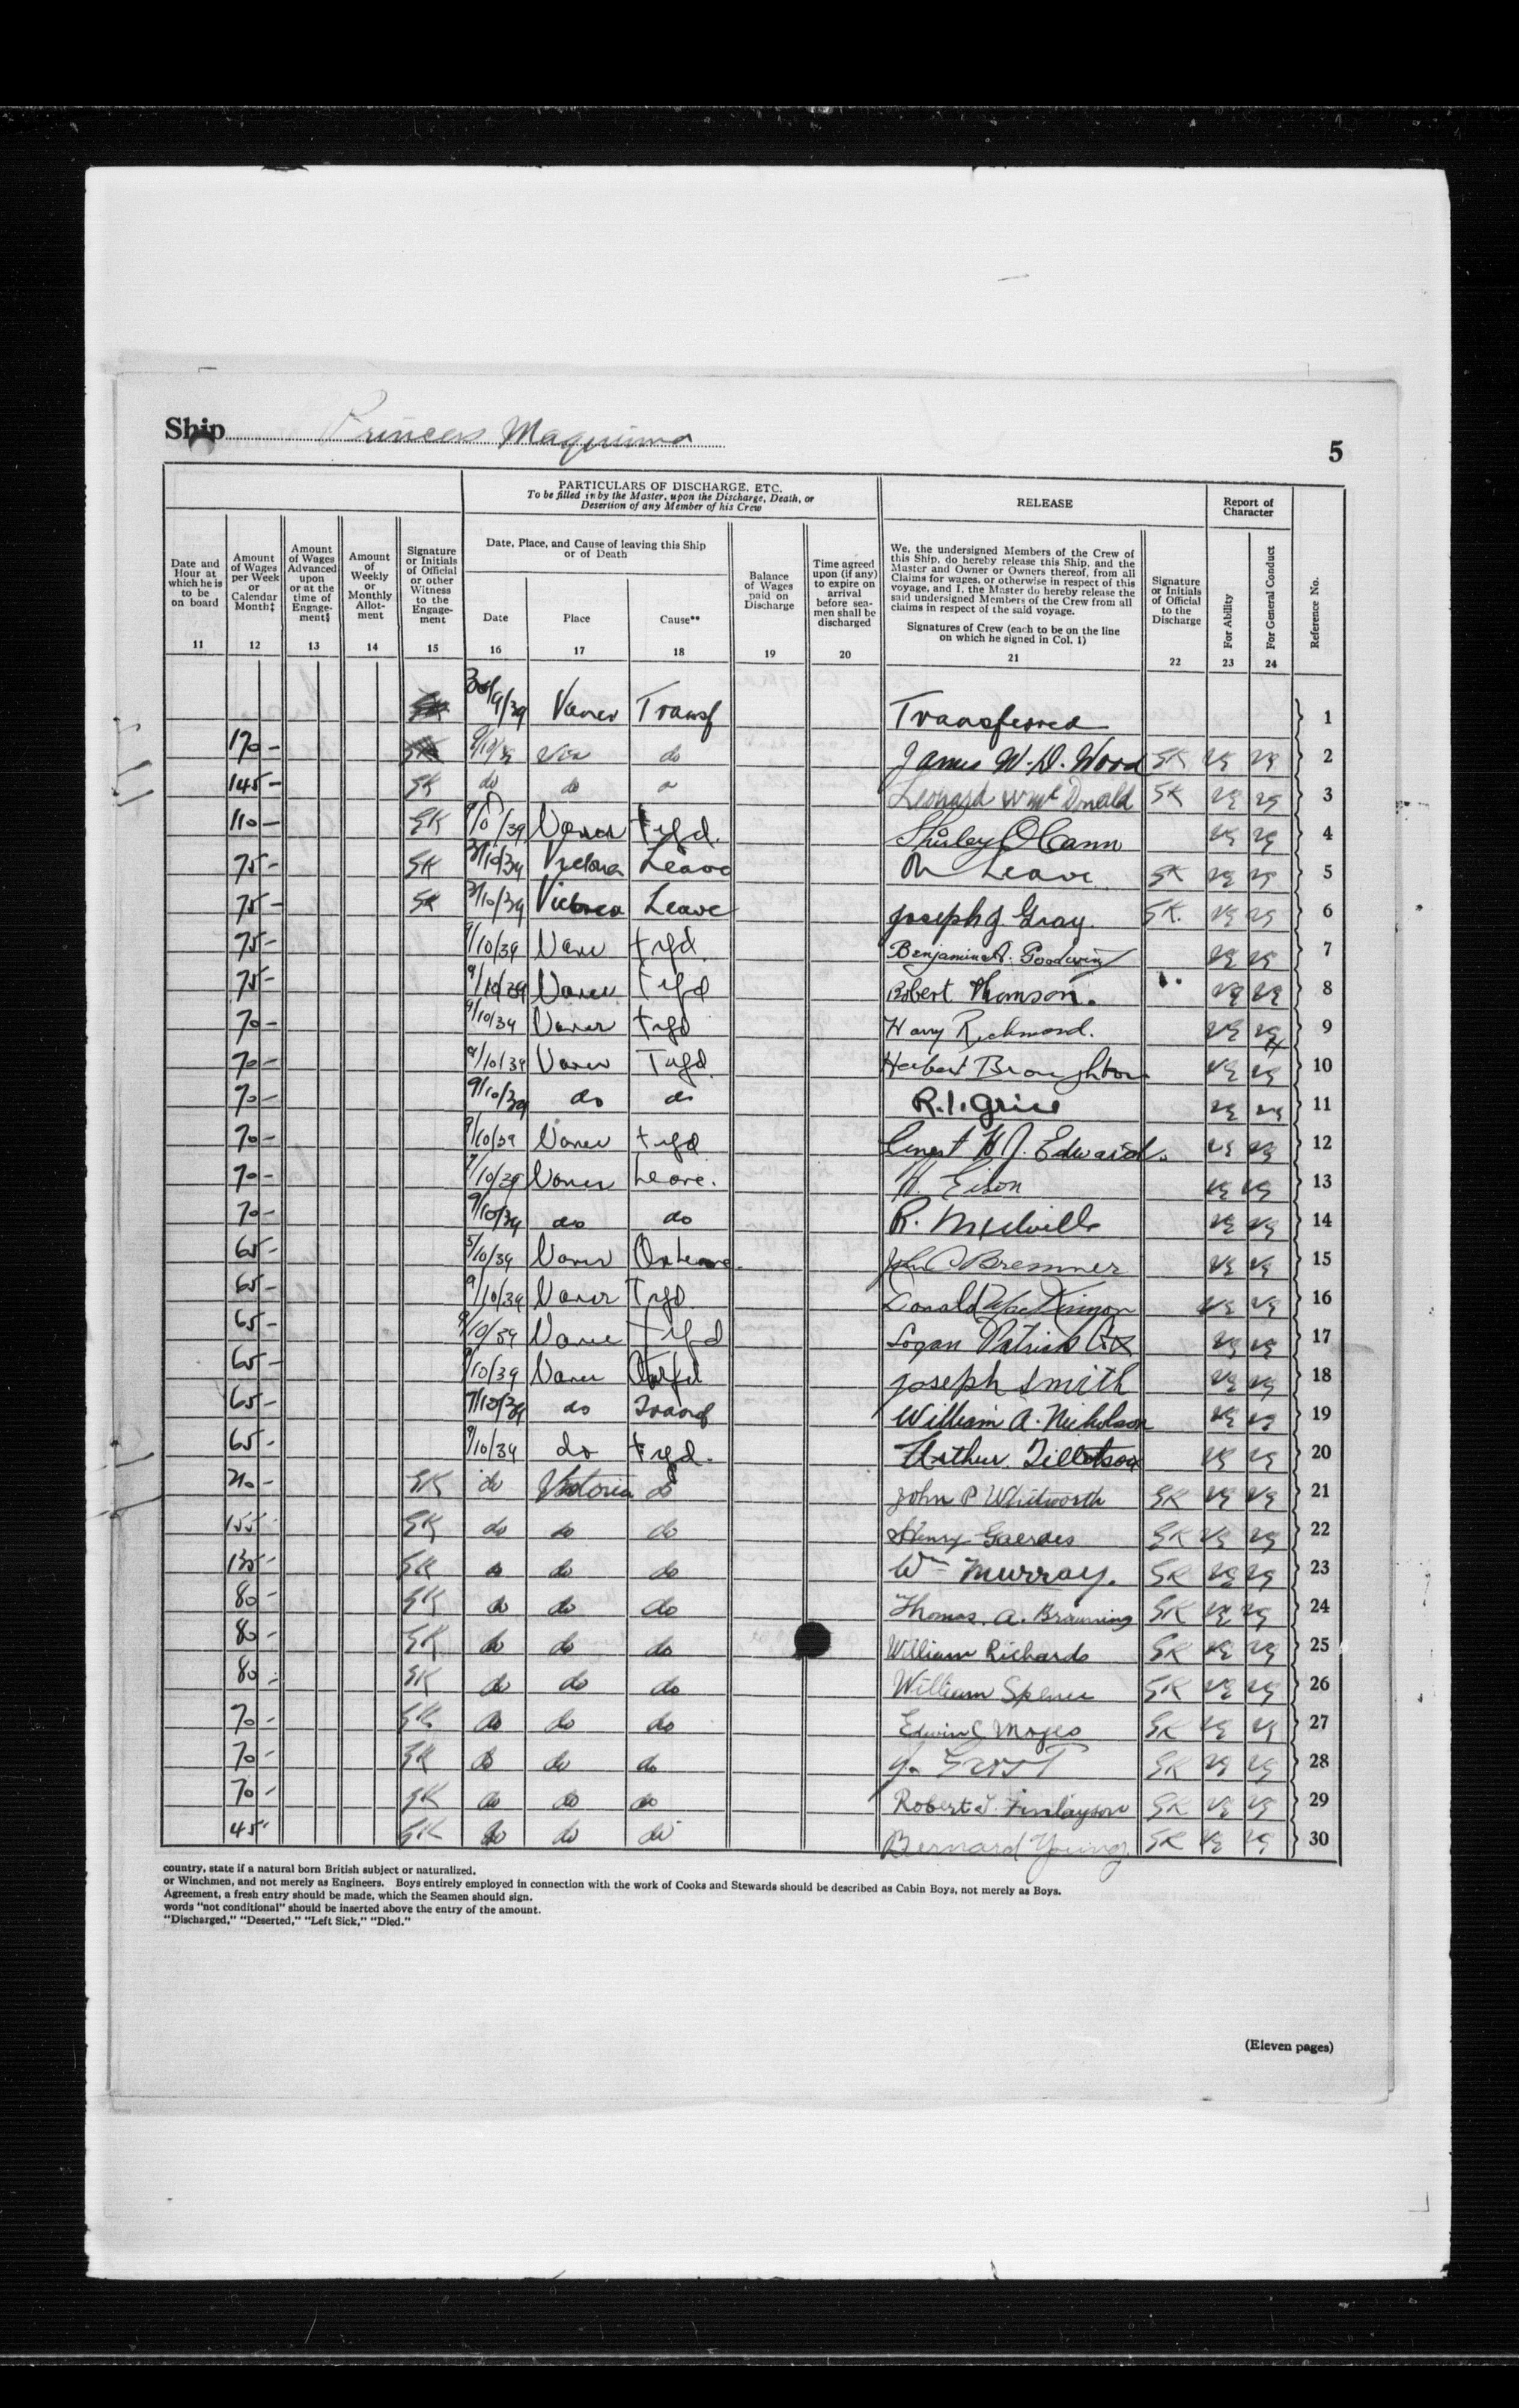 Ship Princess Maquinna
5
PARTICULARS OF DISCHARGE, ETC.
To be filled in by the Master, upon the Discharge, Death, or
Desertion of any Member of his Crew
RELEASE
Report of
Character
Date and
Hour at
which he is
to be
on board
Amount
of Wages
per Week
or
Calendar
Month‡
Amount
of Wages
Advanced
upon
or at the
time of
Engage-
ment§
Amount
of
Weekly
or
Monthly
Allot-
ment
Signature
or Initials
of Official
or other
Witness
to the
Engage-
ment
Date, Place, and Cause of leaving this Ship
or of Death
Date
Place
Cause**
Balance
of Wages
paid on
Discharge
Time agreed
upon (if any)
to expire on
arrival
before sea-
men shall be
discharged
We, the undersigned Members of the Crew of
this Ship, do hereby release this Ship, and the
Master and Owner or Owners thereof, from all
Claims for wages, or otherwise in respect of this
voyage, and I, the Master do hereby release the
said undersigned Members of the Crew from all
claims in respect of the said voyage.
Signatures of Crew (each to be on the line
on which he signed in Col. 1)
Signature
or Initials
of Official
to the
Discharge
For Ability
For General Conduct
Reference No.
11 12 13 14 15 16 17 18 19 20 21 22 23 24
30/9/39 Vancr Transf Transferred 1
170 - do James W. D. Wood GK VG VG 2
145 - GK do do Leonard McDonald GK VG VG 3
110 - GK Vancr Shirley O Cann VG VG 4
75 - GK Victoria Leave On Leave GK VG VG 5
75 - GK Victoria Leave Joseph J. Gray GK. VG VG 6
75 - 9/10/39 Benjamin A. Goodwin VG VG 7
75 - 9/10/39 Vancr Robert Thomson. VG VG 8
70 - 9/10/39 Vancr Harry Richmond. VG VG 9
70 - 9/10/39 Vancr Herbert Broughton VG VG 10
70 - 9/10/39 do do R. I. Grice VG VG 11
70 - 9/10/39 Vancr Ernest H J. Edwards. VG VG 12
70 - 9/10/39 Vancr Leave. VG VG 13
70 - 9/10/39 do do R. Melville VG VG 14
65 - 5/10/39 Vancr On Leave John C Bremner VG VG 15
65 - 9/10/39 Vancr Donald MacKinnon VG VG 16
65 - 9/10/39 Logan Patrick Cox VG VG 17
65 - 9/10/39 Vancr Joseph Smith VG VG 18
65 - 9/10/39 do Transf William A. Nicholson VG VG 19
65 - 9/10/39 do Arthur Tillotson VG VG 20
210 - GK do Victoria do John P Whitworth GK VG VG 21
155 - GK do do do Henry Gaerdes GK VG VG 22
135 - GK do do do Wm Murray. GK VG VG 23
80 - GK do do do Thomas. A. Browning GK VG VG 24
80 - GK do do do William Richards GK VG VG 25
80 - GK do do do William Spencer GK VG VG 26
70 - GK do do do Edwin C Moyes GK VG VG 27
70 - GK do do do J. Frost GK VG VG 28
70 - GK do do do Robert J. Finlayson GK VG VG 29
45 - GK do do do Bernard Young GK VG VG 30
country, state if a natural born British subject or naturalized.
or Winchmen, and not merely as Engineers. Boys entirely employed in connection with the work of Cooks and Stewards should be described as Cabin Boys, not merely as Boys.
Agreement, a fresh entry should be made, which the Seamen should sign.
words "not conditional" should be inserted above the entry of the amount.
"Discharged," "Deserted," "Left Sick," "Died."
(Eleven pages)